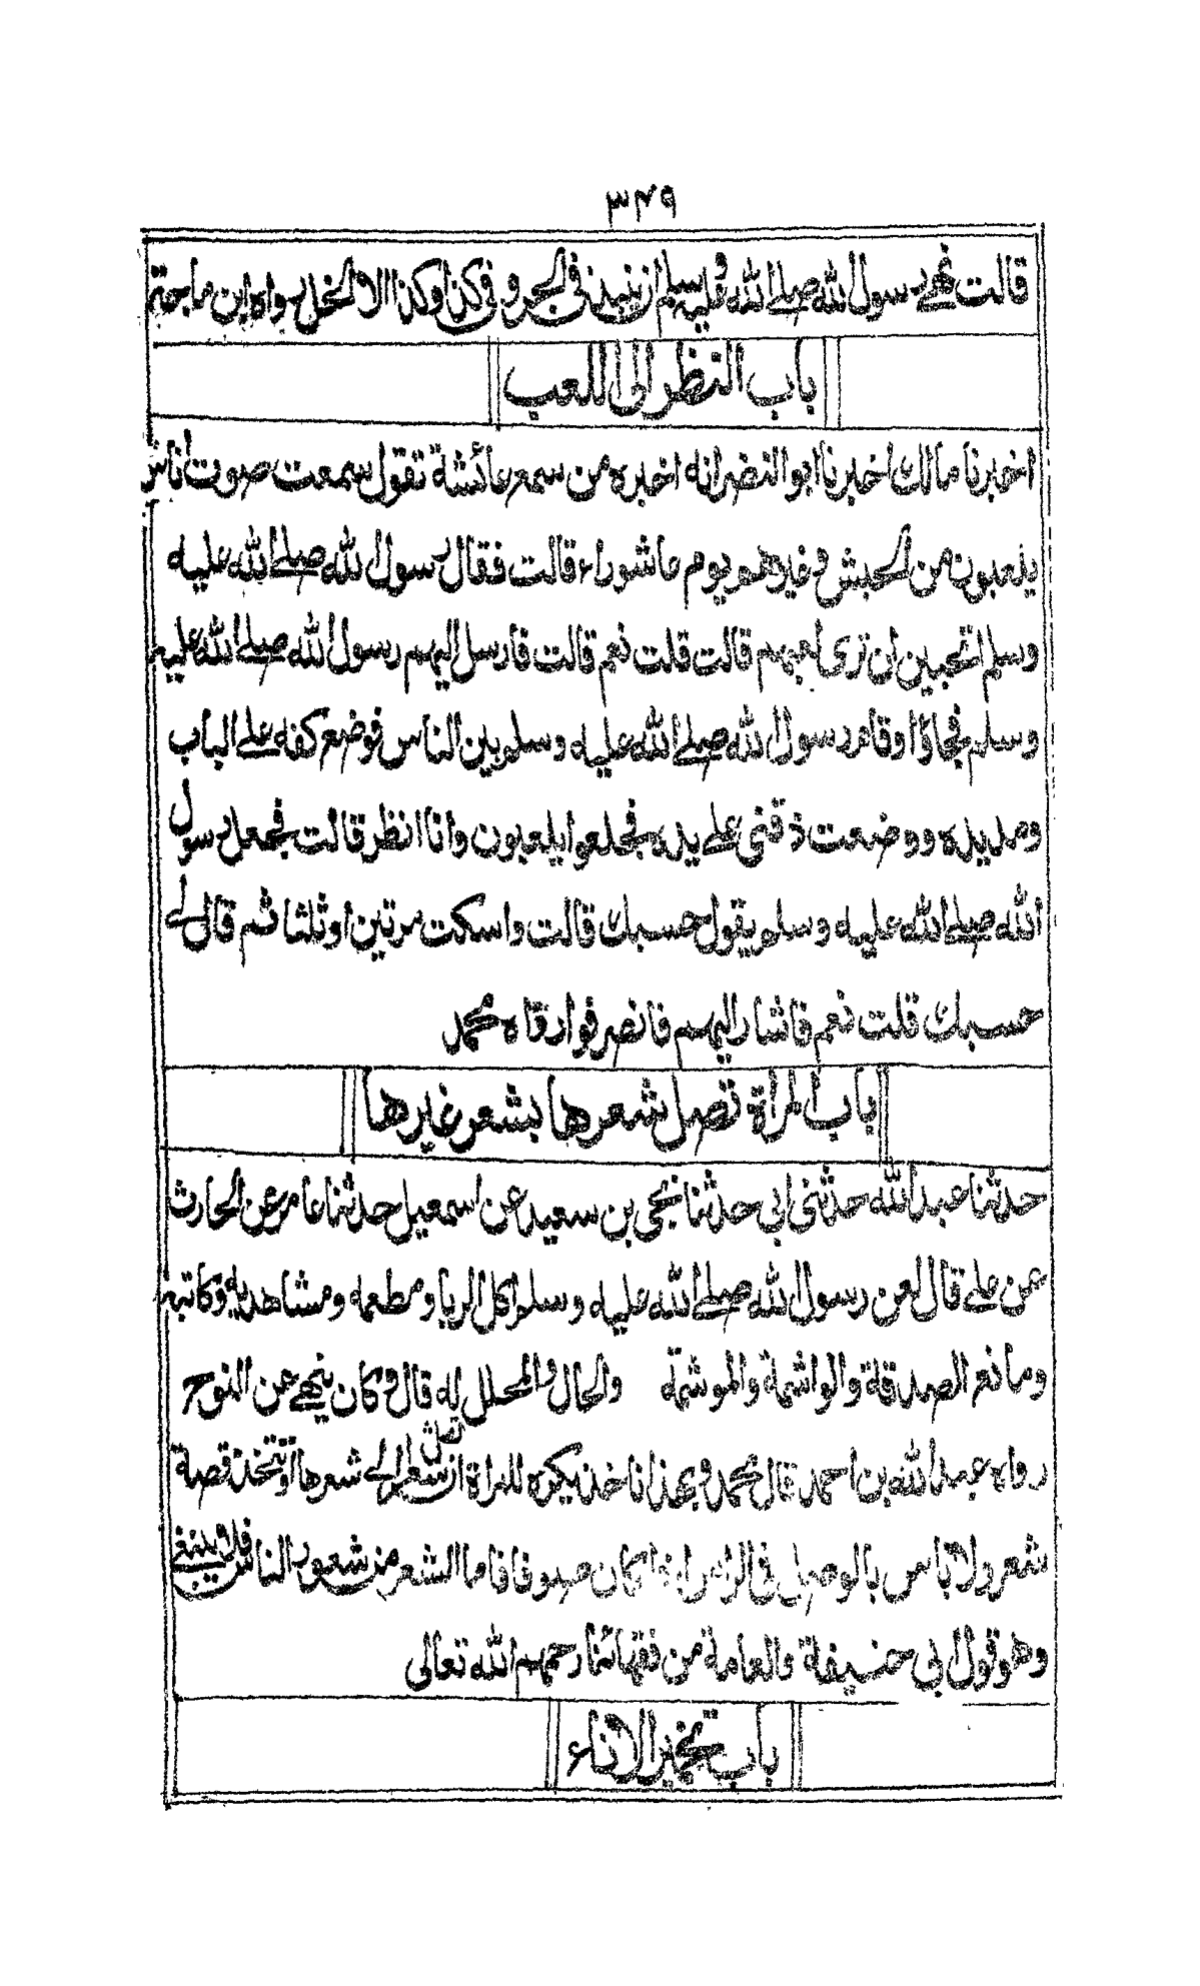 ۳۴۹
قالت نهى رسول الله صلے الله عليه وسلم ان ينبذ فى الجر وفى كذا وكذا الا الخل رواه ابن ماجة
باب النظر الى اللعب
اخبرنا مالك اخبرنا ابو النضر انه اخبره من سمع عائشة تقول سمعت صوت اناس
يلعبون من الحبش وغيرهم يوم عاشوراء قالت فقال رسول الله صلے الله عليه
وسلم اتحبين ان ترى لعبهم قالت قلت نعم قالت فارسل اليهم رسول الله صلے الله عليه
وسلم فجاؤا وقام رسول الله صلے الله عليه وسلم بين الناس فوضع كفه على الباب
ومد يده ووضعت ذقنى على يده فجعلوا يلعبون وانا انظر قالت فجعل رسول
الله صلے الله عليه وسلم يقول حسبك قالت واسكت مرتين او ثلثا ثم قال لے
حسبك قلت نعم فاشار اليهم فانصرفوا رواه محمد
باب المراة تصل شعرها بشعر غيرها
حدثنا عبد الله حدثنى ابي حدثنا يحيى بن سعيد عن اسمعيل حدثنا عامر عن الحارث
عن على قال لعن رسول الله صلے الله عليه وسلم اكل الربا ومطعمه ومشاهديه وكاتبه
ومانع الصدقة والواشمة والموشمة والحال والمحلل له قال وكان ينهى عن النوح
رواه عبد الله بن احمد قال محمد وبهذا ناخذ يكره للمراة ان تصل شعرا الے شعرها او تتخذ قصة
شعر ولا باس بالوصل فى الراس اذا كان صوفا فاما الشعر من شعور الناس فلا ينبغى
وهو قول ابي حنيفة والعامة من فقهائنا رحمهم الله تعالى
باب تخمير الاناء